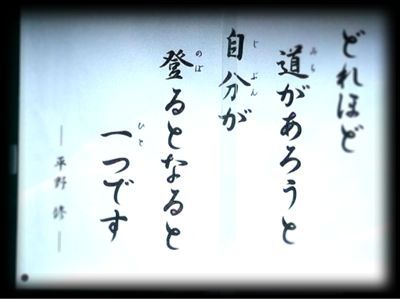 どれほど
道があろうと
自分が
登るとなると
一つです
― 平野 修 ―